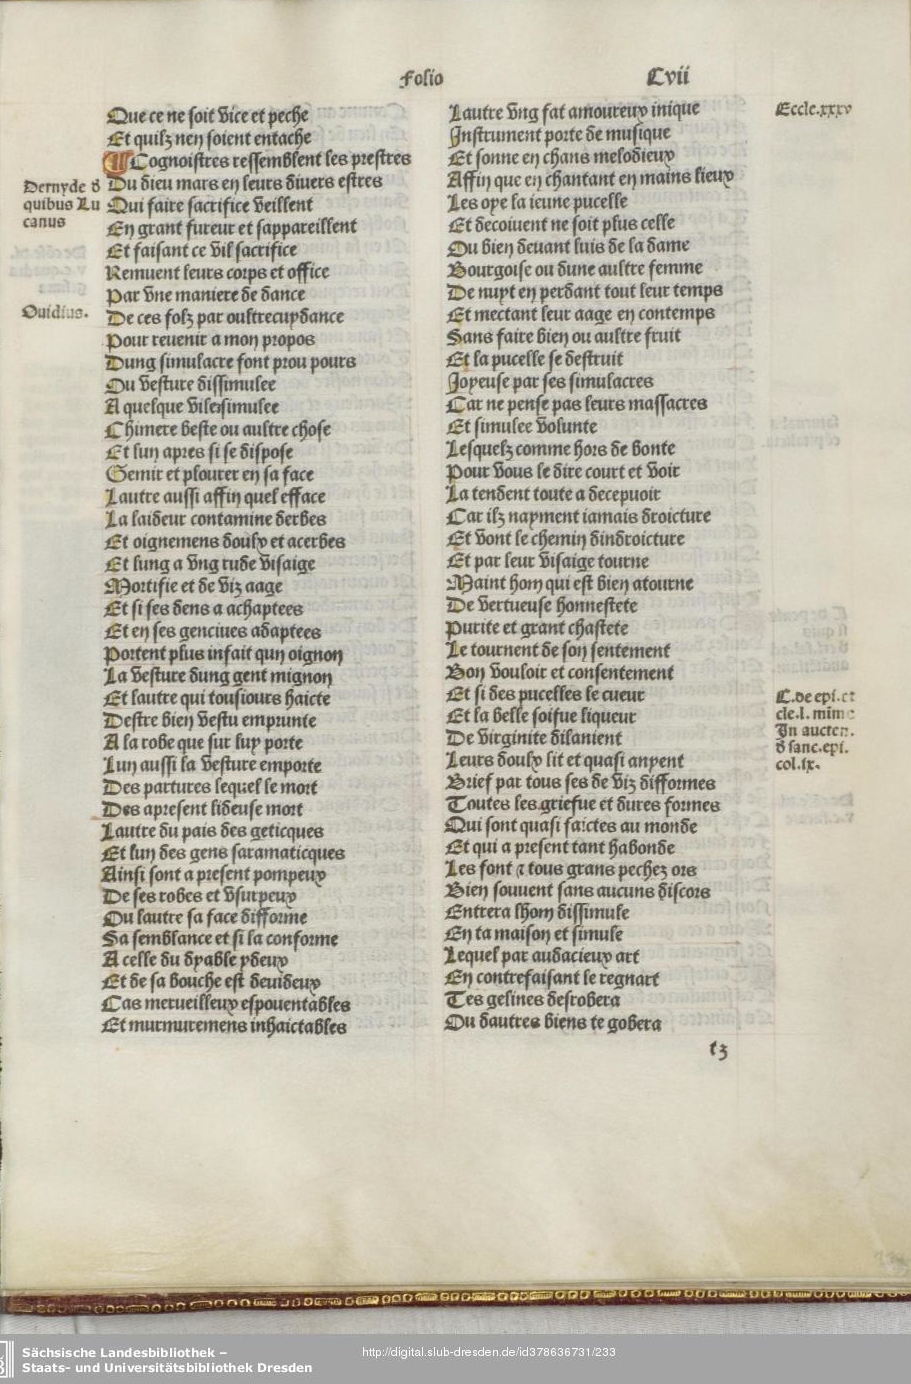 Folio Cvii
Que ce ne soit vice et peche
Et quilz nen soient entache
¶ Cognoistres ressemblent les prestres
Dernyde d
quibus Lu
canus
Du dieu mars en leurs divers estres
Qui faire sacrifice veillent
En grant fureur et sappareillent
Et faisant ce vil sacrifice
Remuent leurs corps et office
Par vne maniere de dance
Ouidius.
De ces folz par oultrecuydance
Pour revenir a mon propos
Dung simulacre font prou pours
Ou vesture dissimulee
A quelque vile simulee
Chimere beste ou aultre chose
Et lun apres si se dispose
Gemir et plourer en sa face
Lautre aussi affin quel efface
La laideur contamine derbes
Et oignemens doulx et acerbes
Et lung a vng rude visaige
Mortifie et de viz aage
Et si ses dens a achaptees
Et en ses gencives adaptees
Portent plus infait qun oignon
La vesture dung gent mignon
Et lautre qui tousiours haicte
Destre bien vestu emprunte
A la robe que sur luy porte
Lun aussi la vesture emporte
Des partures lequel le mort
Des apresent lideuse mort
Lautre du pais des geticques
Et lun des gens saramaticques
Ainsi sont a present pompeux
De ses robes et vsurpeux
Ou lautre sa face difforme
Sa semblance et si la conforme
A celle du dyable ydeux
Et de sa bouche est devideux
Cas merveilleux espouentables
Et murmuremens inhaictables
Lautre vng fat amoureux inique
Eccle.xxxv
Instrument porte de musique
Et sonne en chans melodieux
Affin que en chantant en mains lieux
Les oye la ieune pucelle
Et decoivent ne soit plus celle
Ou bien devant luis de la dame
Bourgoise ou dune aultre femme
De nuyt en perdant tout leur temps
Et mectant leur aage en contemps
Sans faire bien ou aultre fruit
Et la pucelle se destruit
Joyeuse par ses simulacres
Car ne pense pas leurs massacres
Et simulee volunte
Lesquelz comme hors de bonte
Pour vous le dire court et voir
La tendent toute a decepvoir
Car ilz nayment iamais droicture
Et vont le chemin dindroicture
Et par leur visaige tourne
Maint hom qui est bien atourne
De vertueuse honnestete
Purite et grant chastete
Le tournent de son sentement
Bon vouloir et consentement
Et si des pucelles le cueur
C.de epi.et
cle.l.mime
In aucten.
d sanc.epi.
col.ix.
Et la belle soifue liqueur
De virginite dilanient
Leurs doulx lit et quasi anyent
Brief par tous ses de viz difformes
Toutes les griefue et dures formes
Qui sont quasi faictes au monde
Et qui a present tant habonde
Les font & tous grans pechez ors
Bien souvent sans aucuns discors
Entrera lhom dissimule
En ta maison et simule
Lequel par audacieux art
En contrefaisant le regnart
Tes gelines desrobera
Ou dautres biens te gobera
t3
Sächsische Landesbibliothek –
Staats- und Universitätsbibliothek Dresden
http://digital.slub-dresden.de/id378636731/233